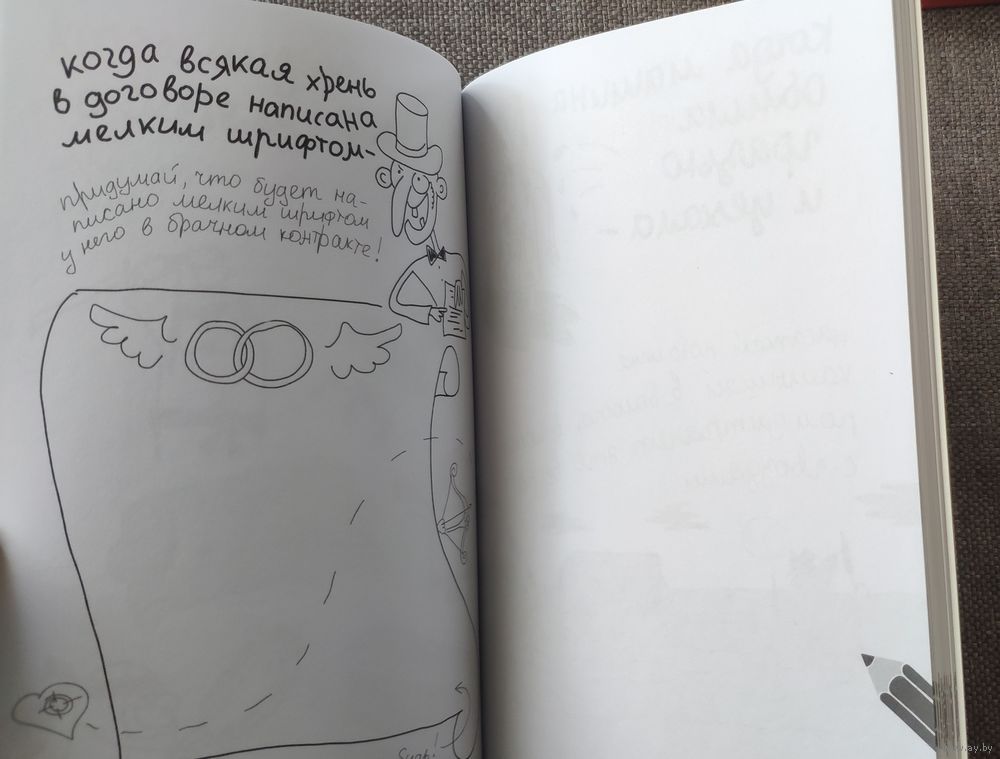 когда всякая хрень
в договоре написана
мелким шрифтом-
придумай, что будет на-
писано мелким шрифтом
у него в брачном контракте!